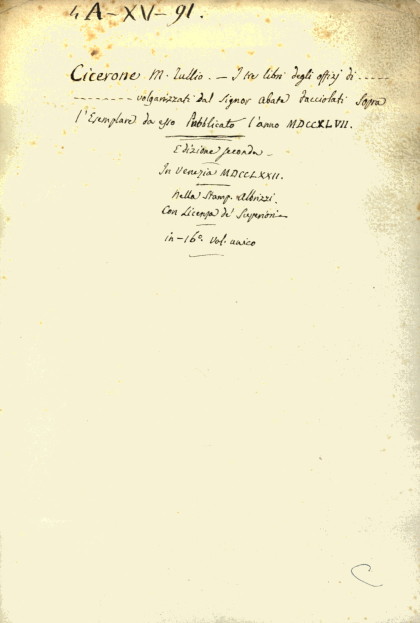 4 A-XV-91.
Cicerone M. Tullio. — I tre libri degli offizj di -----
--------- volgarizzati dal Signor abate Facciolati Sopra
l'Esemplare da esso Pubblicato l'anno MDCCXLVII.
Edizione seconda
In Venezia MDCCLXXII.
Nella Stamp. Albrizzi.
Con Licenza de' Superiori
in-16º. Vol. unico
C